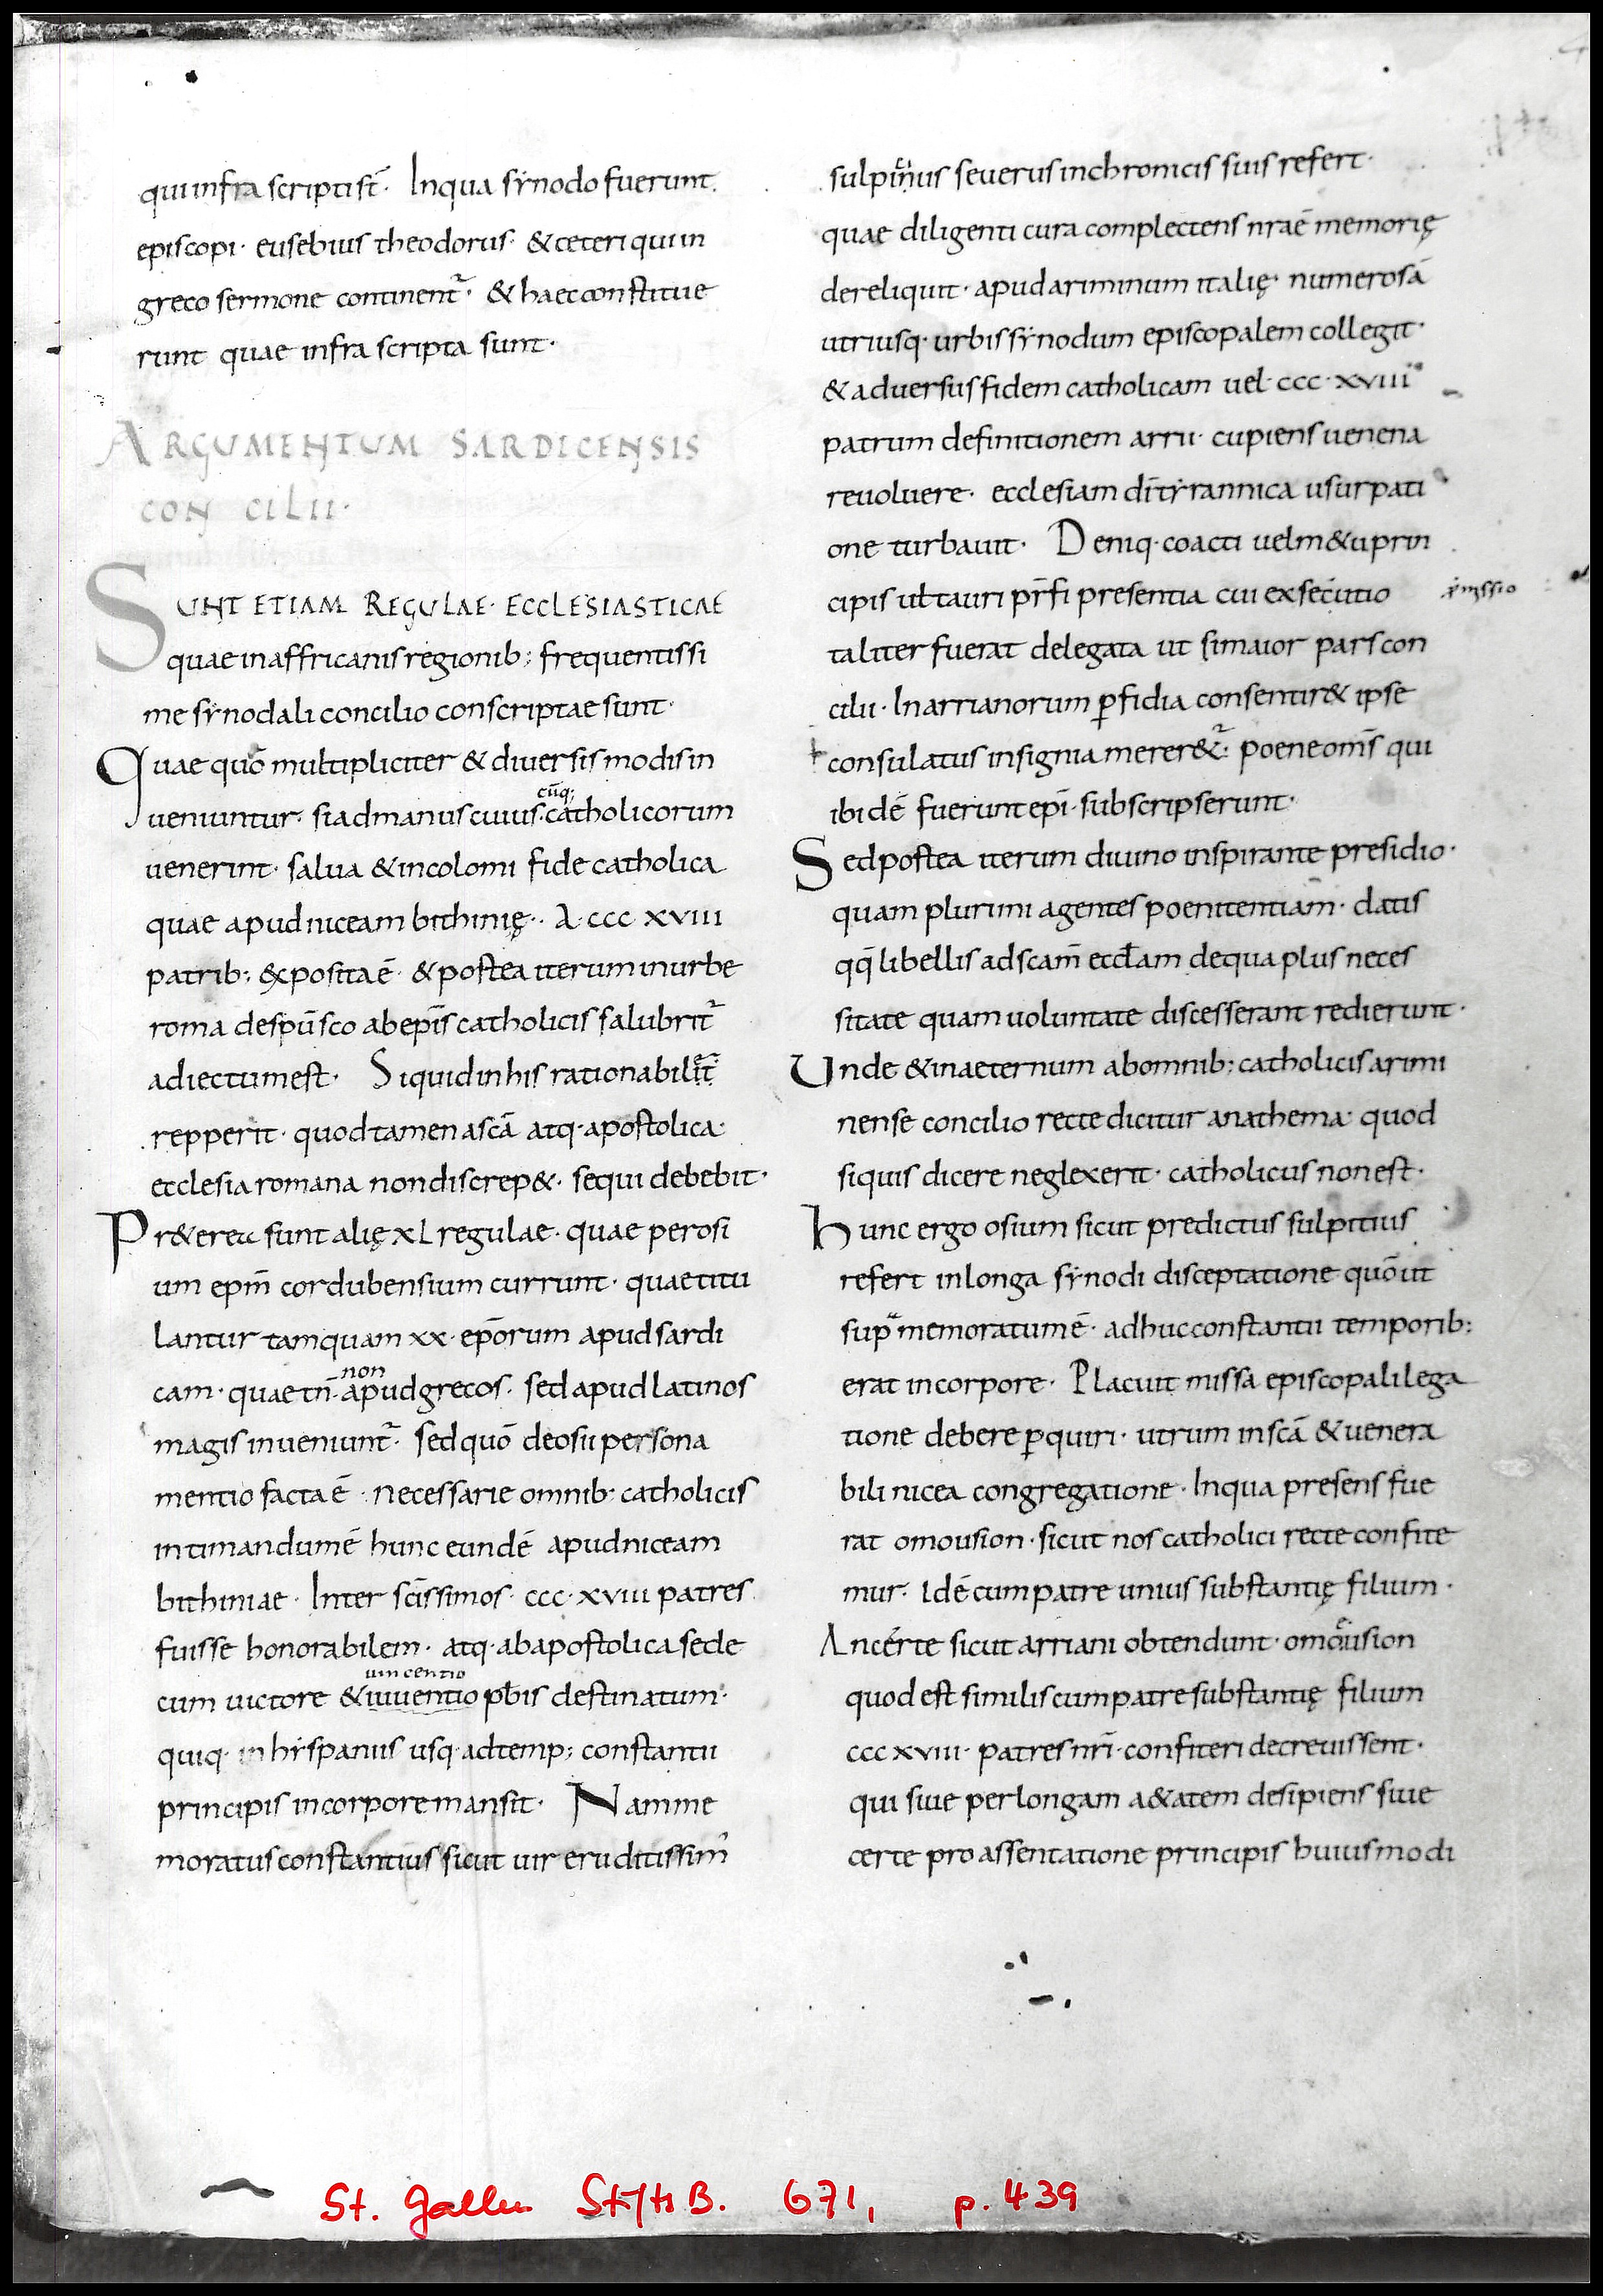 qui infra scripti st̄· In qua synodo fuerunt.
episcopi· eusebius theodorus· & ceteri qui in
greco sermone continent᷑· & haec constitue
runt quae infra scripta sunt·
ARGUMENTUM SARDICENSIS
CONCILII·
SUNT ETIAM REGULAE· ECCLESIASTICAE
quae in affricanis regionib; frequentissi
me synodali concilio conscriptae sunt·
Quae quō multipliciter & diuersis modis in
cūq;
ueniuntur· si ad manus cuius· catholicorum
uenerint· salua & incolomi fide catholica
quae apud niceam bithinię·· A· ccc xviii
patrib; exposita ē· & postea iterum in urbe
roma despūsco ab epīs catholicis salubrit᷑
adiectum est· Si quid in his rationabilit᷑
repperit· quod tamen a scā atq· apostolica·
ecclesia romana non discrep&· sequi debebit·
Pr&erea sunt alię xl regulae· quae per osi
um epm̄ cordubensium currunt· quae titu
lantur tamquam xx· epōrum apud sardi
non
cam· quae tn̄· apud grecos· sed apud latinos
magis inueniunt᷑· sed quō de osii persona
mentio facta ē· necessarie omnib; catholicis
intimandum ē hunc eundē apud niceam
bithiniae· Inter scīssimos· ccc· xviii patres
fuisse honorabilem· atq· ab apostolica sede
uincentio
cum uictore & iuuentio pb̄is destinatum·
quiq· in hyspaniis usq· ad temp; constantii
principis in corpore mansit· Nam me
moratus constantius sicut uir eruditissim᾿
sulpitius seuerus in chronicis suis refert·
quae diligenti cura complectens nrāe memorię
dereliquit· apud ariminum italię· numerosā
utriusq· urbis synodum episcopalem collegit·
& aduersus fidem catholicam uel· ccc· xviii
patrum definitionem arrii· cupiens uenena
reuoluere· ecclesiam dī tyrannica usurpati
one turbauit· Deniq· coacti uel m&u prin
cipis ul tauri prf̄i presentia cui exsecutio
taliter fuerat delegata ut si maior pars con
cilii· In arrianorum ꝑfidia consentir& ipse
consulatus insignia merer&᷑· poene omīs qui
ibidē fuerunt epī· subscripserunt·
Sed postea iterum diuino inspirante presidio·
quam plurimi agentes poenitentiam· datis
qq̄ libellis ad scam̄ eccłam de qua plus neces
sitate quam uoluntate discesserant redierunt·
Unde & in aeternum ab omnib; catholicis arimi
nense concilio recte dicitur anathema· quod
si quis dicere neglexerit· catholicus non est·
hunc ergo osium sicut predictus sulpitius
refert in longa synodi disceptatione quō ut
supra memoratum ē· adhuc constantii temporib;
erat in corpore· Placuit missa episcopali lega
tione debere ꝑquiri· utrum in scā & uenera
bili nicea congregatione· In qua presens fue
rat omousion· sicut nos catholici recte confite
mur· Idē cum patre unius substantię filium·
An certe sicut arriani obtendunt· omoeusion
quod est similis cum patre substantię filium
ccc xviii· patres nrī· confiteri decreuissent·
qui siue per longam a&atem desipiens siue
certe pro assentatione principis huiusmodi
St. Gallen StiftsB. 671, p. 439